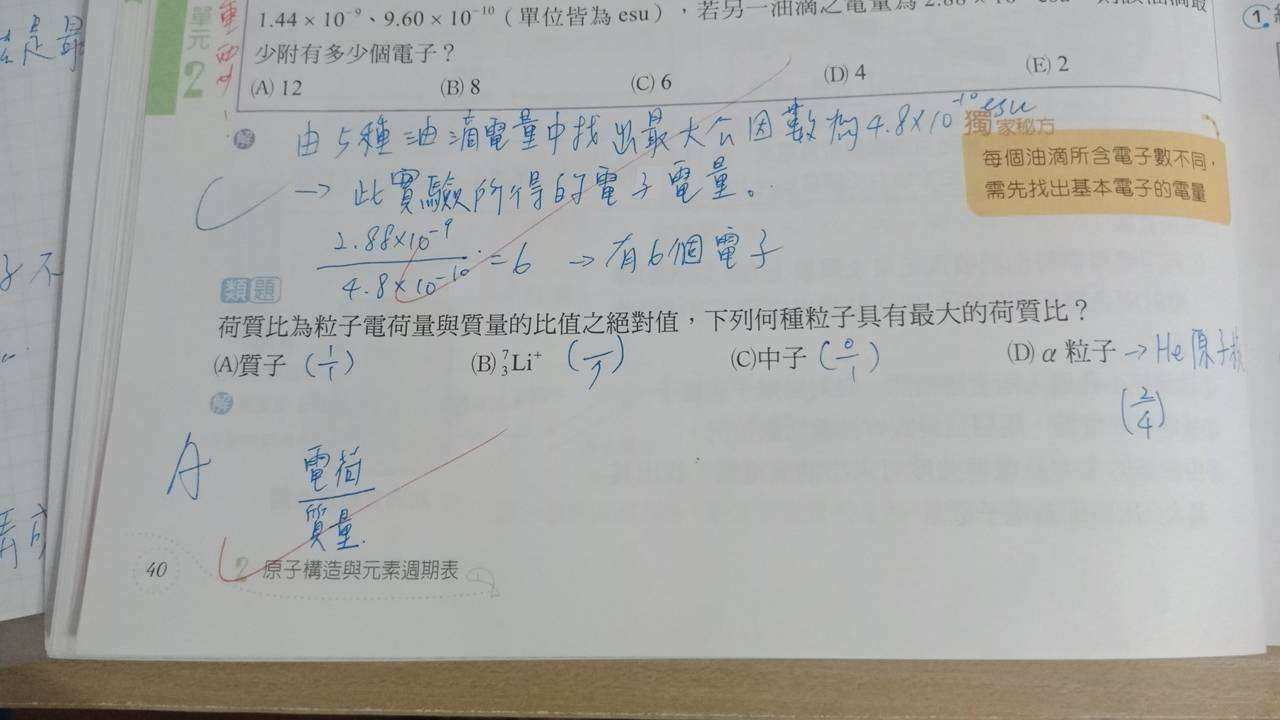 單元 2
1.44 × 10⁻⁹、9.60 × 10⁻¹⁰（單位皆為 esu），若另一油滴之電量為 2.88 × 10
少附有多少個電子？
(A) 12 (B) 8 (C) 6 (D) 4 (E) 2
解 由5種油滴電量中找出最大公因數為4.8×10⁻¹⁰esu
獨家秘方
每個油滴所含電子數不同，
需先找出基本電子的電量
→ 此實驗所得的電子電量。
2.88×10⁻⁹
4.8×10⁻¹⁰ = 6 → 有6個電子
類題
荷質比為粒子電荷量與質量的比值之絕對值，下列何種粒子具有最大的荷質比？
(A)質子 (1/1) (B) ⁷₃Li⁺ (C)中子 (0/1) (D) α 粒子 → He原子核
(2/4)
解
A
電荷
質量
40 2 原子構造與元素週期表